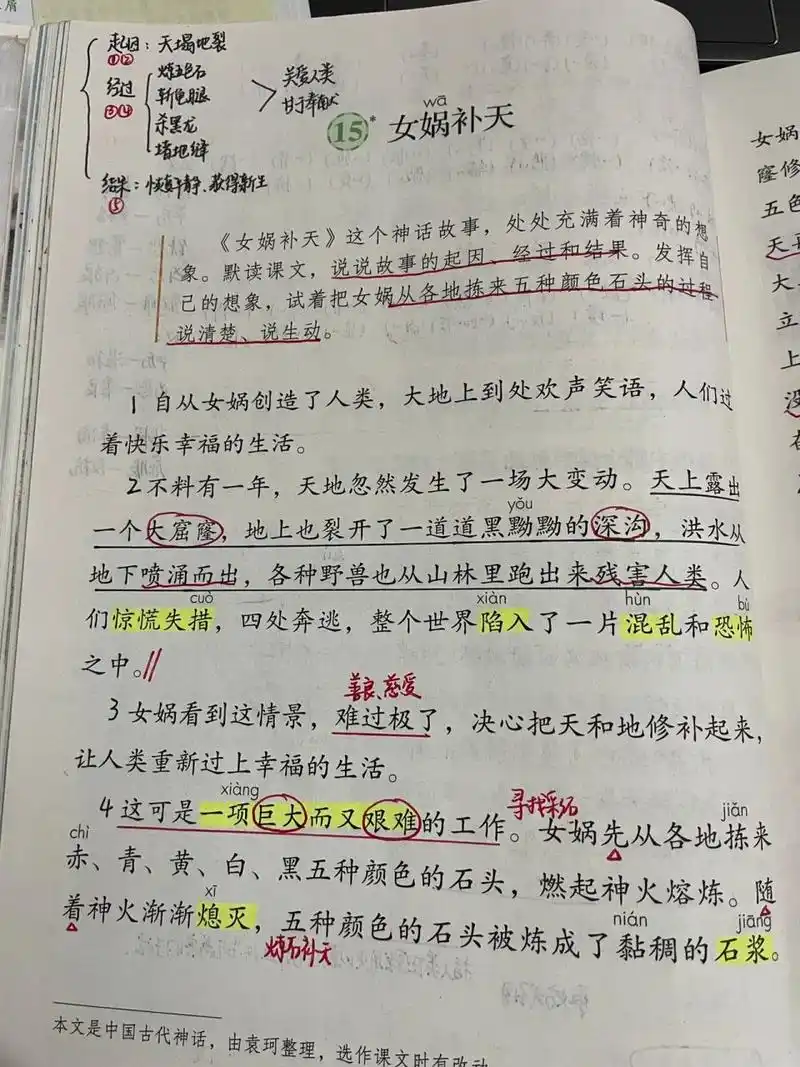 起因：天塌地裂
①②
经过
③④
炼五色石
斩龟腿
杀黑龙
堵地缝
关爱人类
甘于奉献
结果：恢复平静、获得新生
⑤
wā
15* 女娲补天
《女娲补天》这个神话故事，处处充满着神奇的想
象。默读课文，说说故事的起因、经过和结果。发挥自
己的想象，试着把女娲从各地拣来五种颜色石头的过程
说清楚、说生动。
1自从女娲创造了人类，大地上到处欢声笑语，人们过
着快乐幸福的生活。
2不料有一年，天地忽然发生了一场大变动。天上露出
yǒu
一个大窟窿，地上也裂开了一道道黑黝黝的深沟，洪水从
地下喷涌而出，各种野兽也从山林里跑出来残害人类。人
cuò xiàn hùn bù
们惊慌失措，四处奔逃，整个世界陷入了一片混乱和恐怖
之中。//
善良、慈爱
3女娲看到这情景，难过极了，决心把天和地修补起来，
让人类重新过上幸福的生活。
xiàng 寻找采石 jiǎn
4这可是一项巨大而又艰难的工作。女娲先从各地拣来
chì
赤、青、黄、白、黑五种颜色的石头，燃起神火熔炼。随
xī nián jiāng
着神火渐渐熄灭，五种颜色的石头被炼成了黏稠的石浆。
炼石补天
本文是中国古代神话，由袁珂整理，选作课文时有改动
女娲
窿修
五色
天
大
立
上
没
在